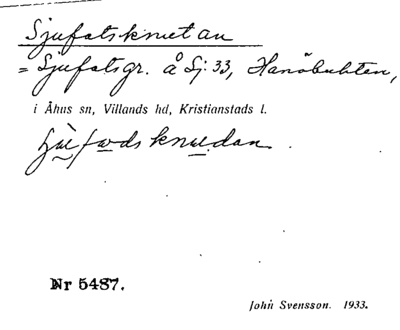 Sjufatsknutan
= Sjufatsgr. å Sj: 33, Hanöbukten,
i Åhus sn, Villands hd, Kristianstads l.
knudan.
Nr 5487.
John Svensson. 1933.